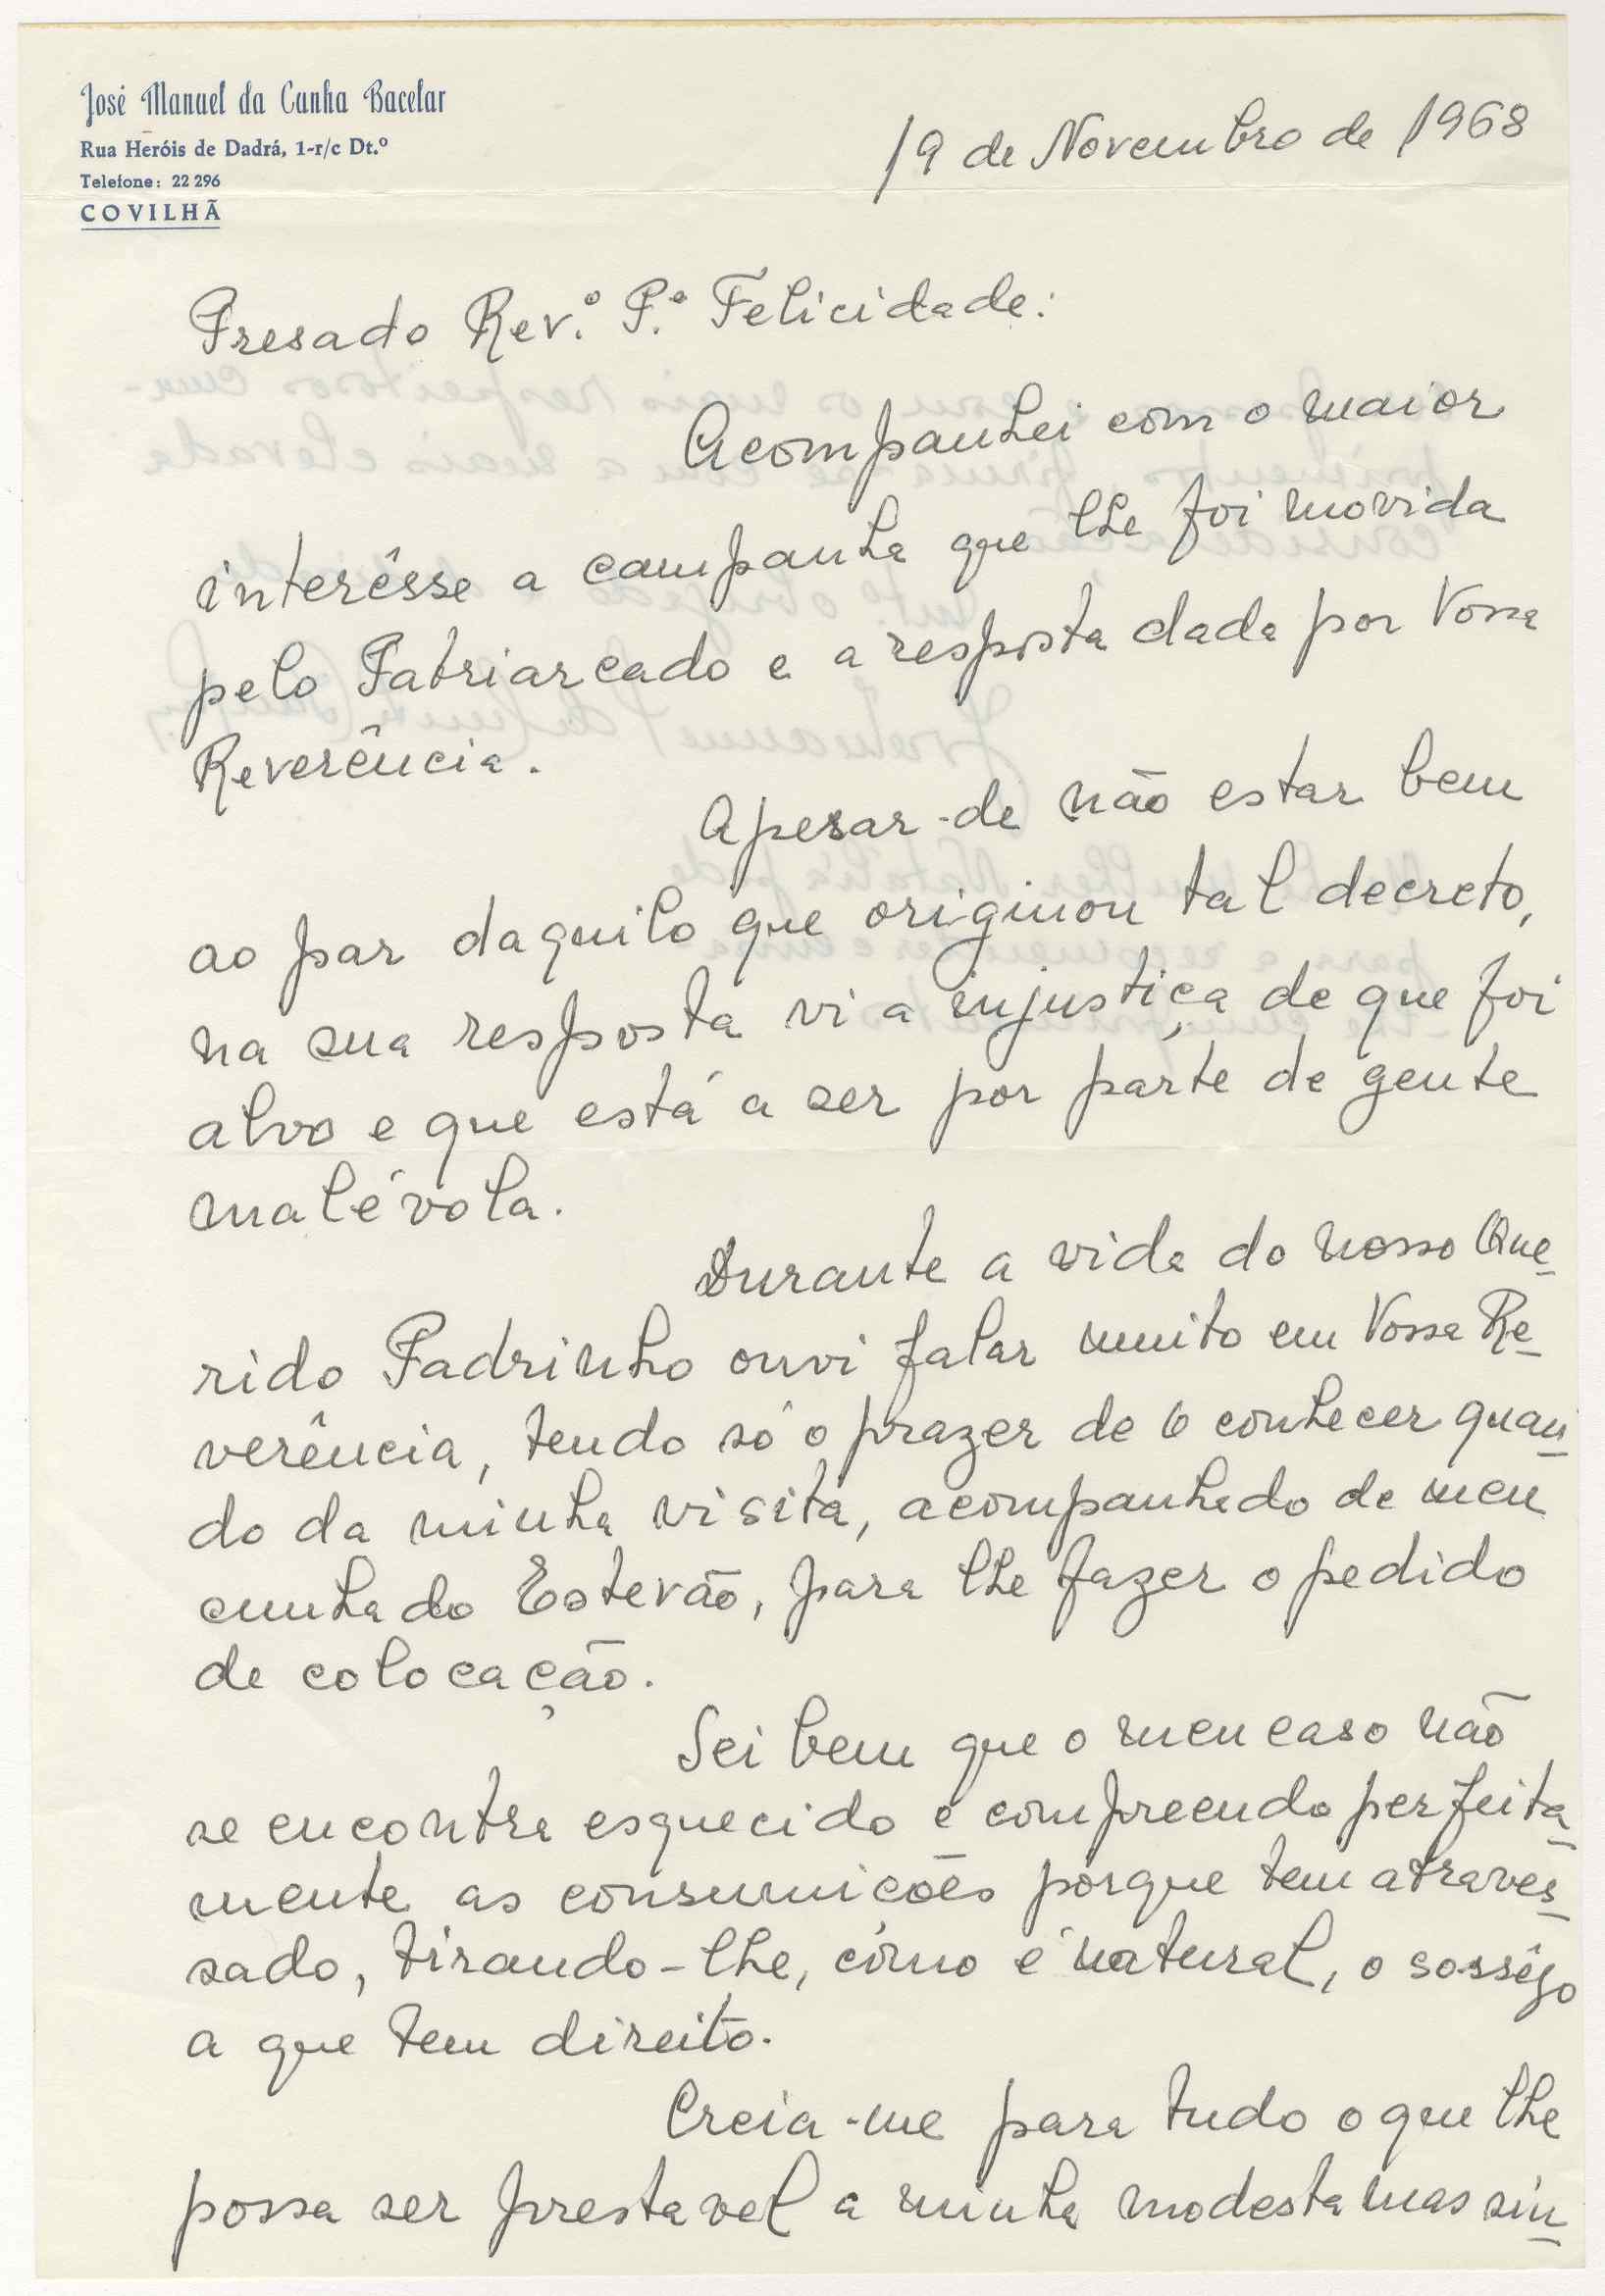 José Manuel da Cunha Bacelar
Rua Heróis de Dadrá, 1-r/c Dt.º
Telefone: 22 296
COVILHÃ
19 de Novembro de 1968
Presado Rev.º P.e Felicidade:
Acompanhei com o maior
interêsse a campanha que lhe foi movida
pelo Patriarcado e a resposta dada por Vossa
Reverência.
Apesar-de não estar bem
ao par daquilo que originou tal decreto,
na sua resposta vi a injustiça de que foi
alvo e que está a ser por parte de gente
malévola.
Durante a vida do nosso Que-
rido Padrinho ouvi falar muito em Vossa Re-
verência, tendo só o prazer de o conhecer quan-
do da minha visita, acompanhado de meu
cunhado Estevão, para lhe fazer o pedido
de colocação.
Sei bem que o meu caso não
se encontra esquecido e compreendo perfeita-
mente as consumições porque tem atraves-
sado, tirando-lhe, como é natural, o sossêgo
a que tem direito.
Creia-me para tudo o que lhe
possa ser prestavel a minha modesta mas sin-